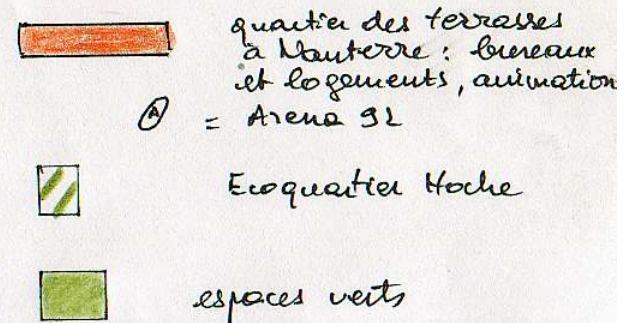 quartier des terrasses
à Nanterre : bureaux
et logements, animation
A = Arena 92
Ecoquartier Hoche
espaces verts